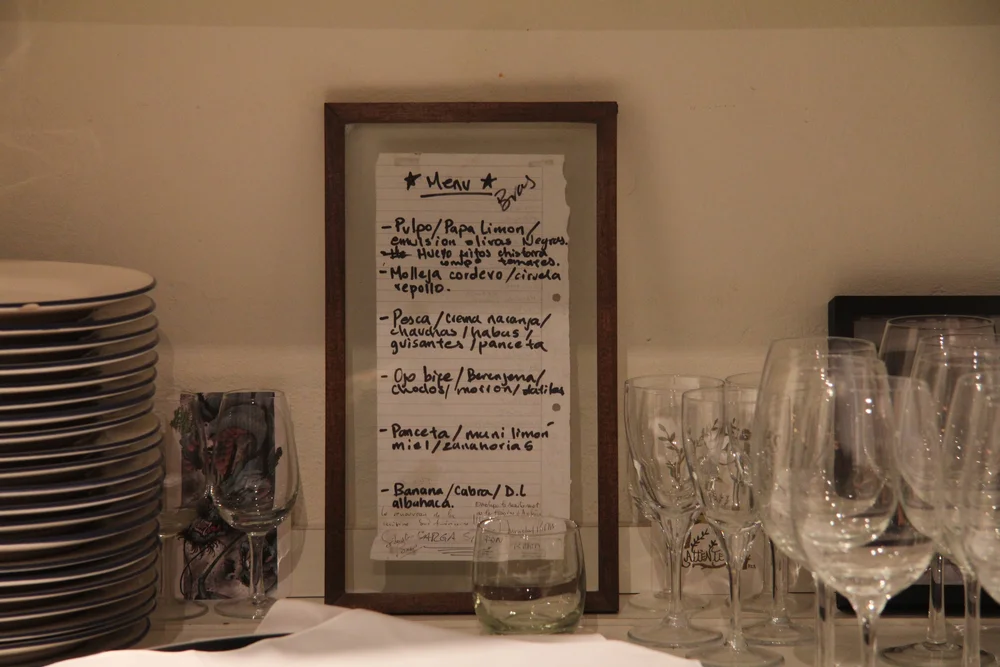 ★ Menu ★
Bros
- Pulpo/Papa Limon/
emulsion olivas Negras.
Huevo fritos chistorra
tomates.
- Molleja cordero/ciruela
repollo.
- Pesca/crema naranja/
chauchas/habas/
guisantes/panceta
- Ojo bife/Berenjena/
choclos/morron/datiles
- Panceta/muni limon
miel/zanahorias
- Banana/Cabra/D.L
albahaca.